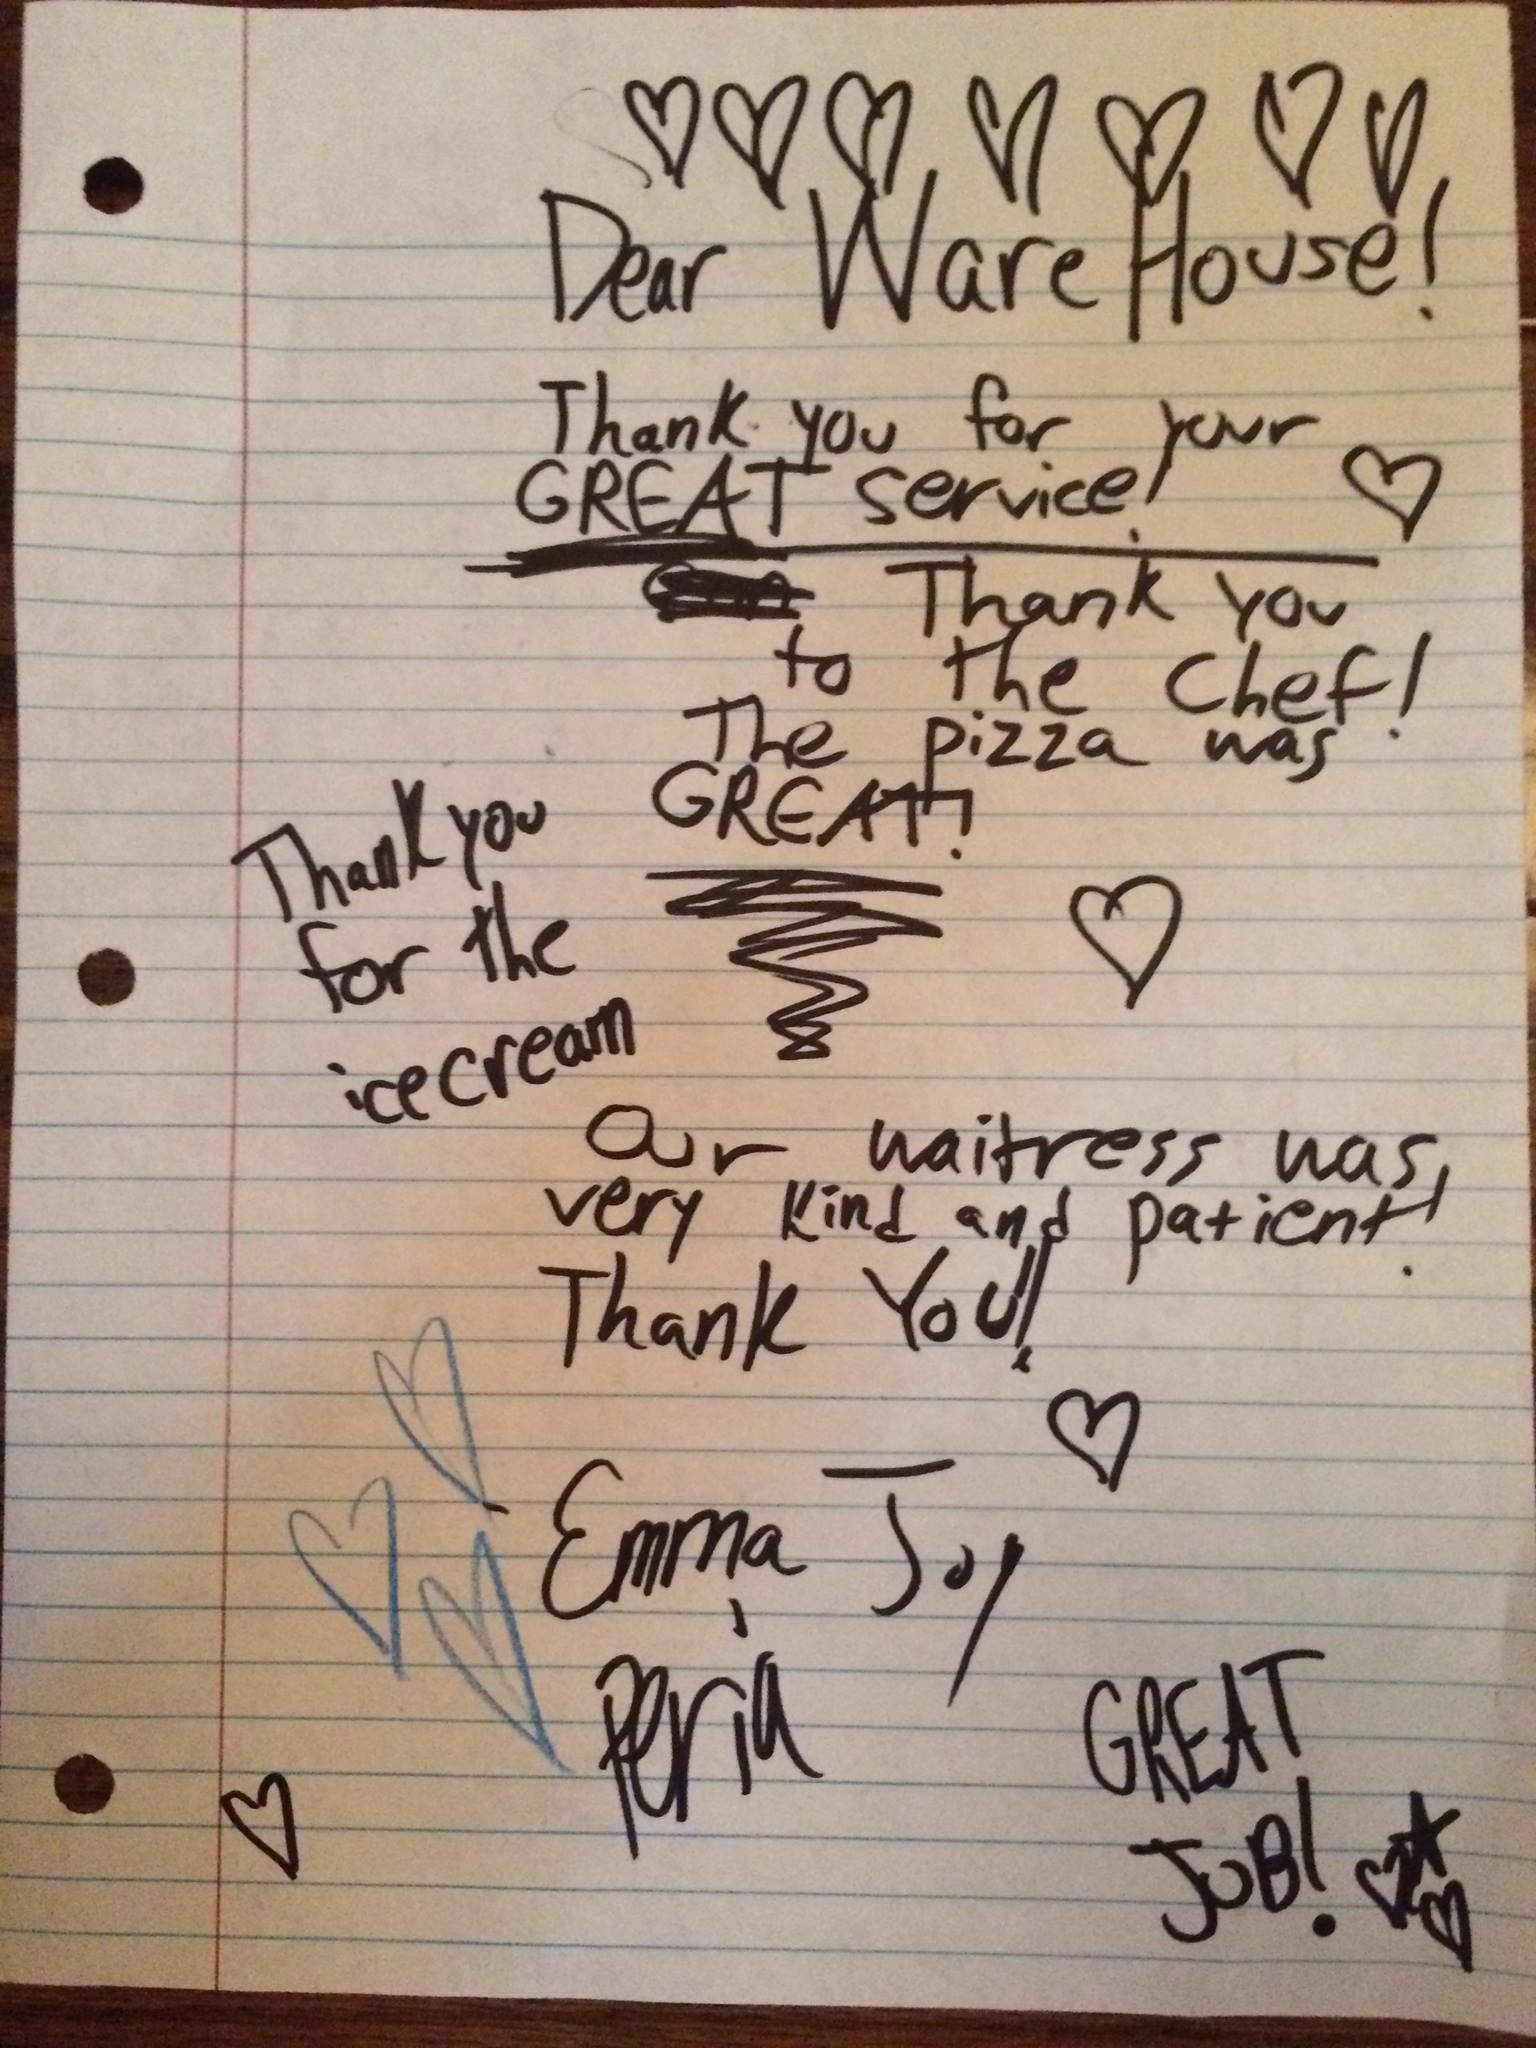 Dear WareHouse!
Thank you for your
GREAT service!
Thank you
to the Chef!
The pizza was
GREAT!
Thank you
for the
icecream
Our waitress was
very kind and patient!
Thank You!!
Emma Joy
Peria
GREAT
JOB!